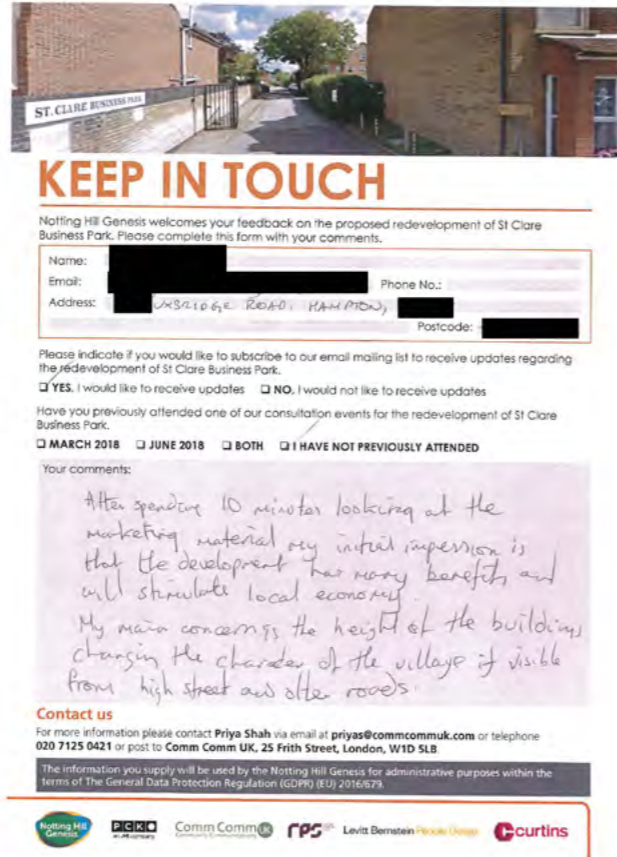 ST. CLARE BUSINESS PARK
KEEP IN TOUCH
Notting Hill Genesis welcomes your feedback on the proposed redevelopment of St Clare
Business Park. Please complete this form with your comments.
Name:
Email:
Phone No.:
Address: UXBRIDGE ROAD, HAMPTON,
Postcode:
Please indicate if you would like to subscribe to our email mailing list to receive updates regarding
the redevelopment of St Clare Business Park.
❑ YES, I would like to receive updates ❑ NO, I would not like to receive updates
Have you previously attended one of our consultation events for the redevelopment of St Clare
Business Park.
❑ MARCH 2018 ❑ JUNE 2018 ❑ BOTH ❑ I HAVE NOT PREVIOUSLY ATTENDED
Your comments:
After spending 10 minutes looking at the
marketing material my initial impression is
that the development has many benefits and
will stimulate local economy.
My main concern is the height of the buildings
changing the character of the village if visible
from high street and other roads.
Contact us
For more information please contact Priya Shah via email at priyas@commcommuk.com or telephone
020 7125 0421 or post to Comm Comm UK, 25 Frith Street, London, W1D 5LB
The information you supply will be used by the Notting Hill Genesis for administrative purposes within the
terms of The General Data Protection Regulation (GDPR) (EU) 2016/679.
Notting Hill
Genesis
PCKO
Comm Comm UK
rps
Levitt Bernstein People Design
curtins